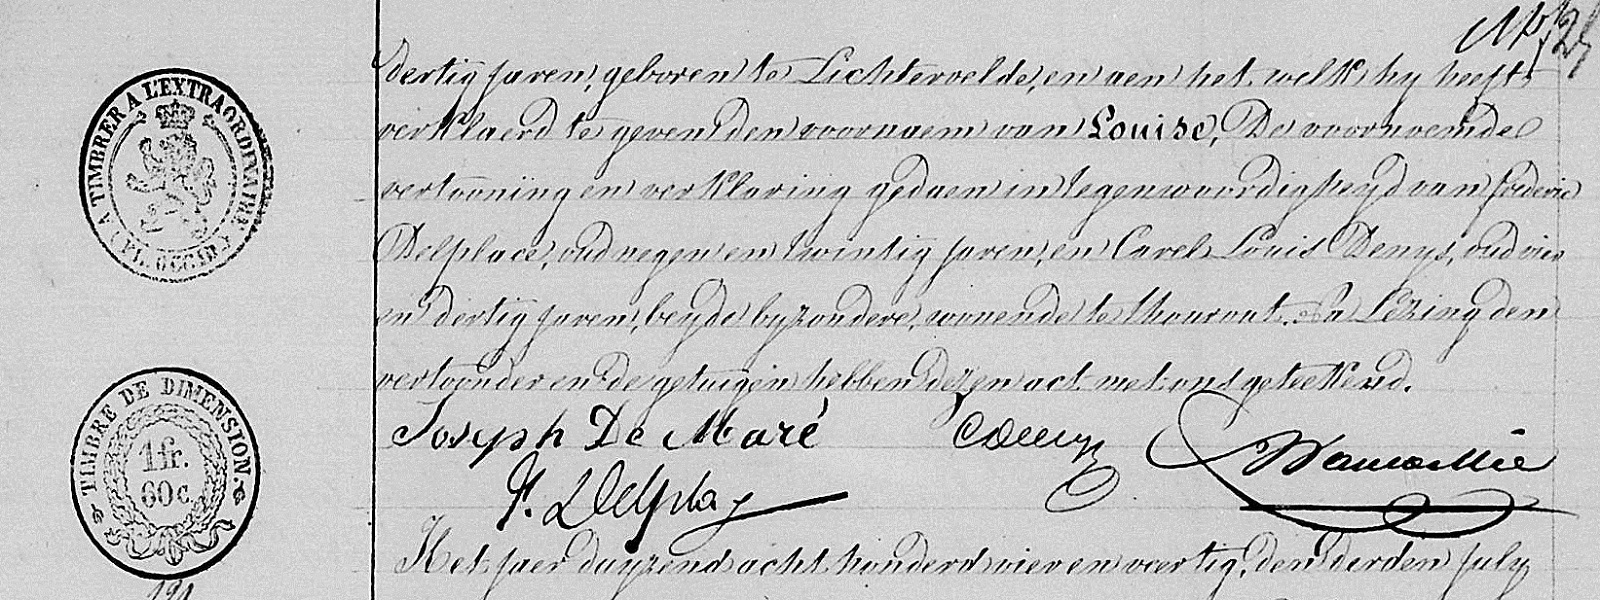 A TIMBRER A L'EXTRAORDINAIRE
(FL. OCCID.)
dertig jaren, geboren te Lichtervelde, en aen het welk hy heeft
verklaerd te geven den voornaem van Louise, De voornoemde
vertooning en verklaring gedaen in tegenwoordigheyd van frederic
Delplace, oud negen en twintig jaren, en Carel Louis Denys, oud vier
en dertig jaren, beyde byzondere, wonende te Thourout. Na Lezing den
vertoonder en de getuigen hebben dezen act met ons geteekend.
TIMBRE DE DIMENSION.
1 fr.
60 c.
Joseph De Maré CDenys
f. Delplace
Het jaer duyzend acht honderd vier en veertig, den derden july
191